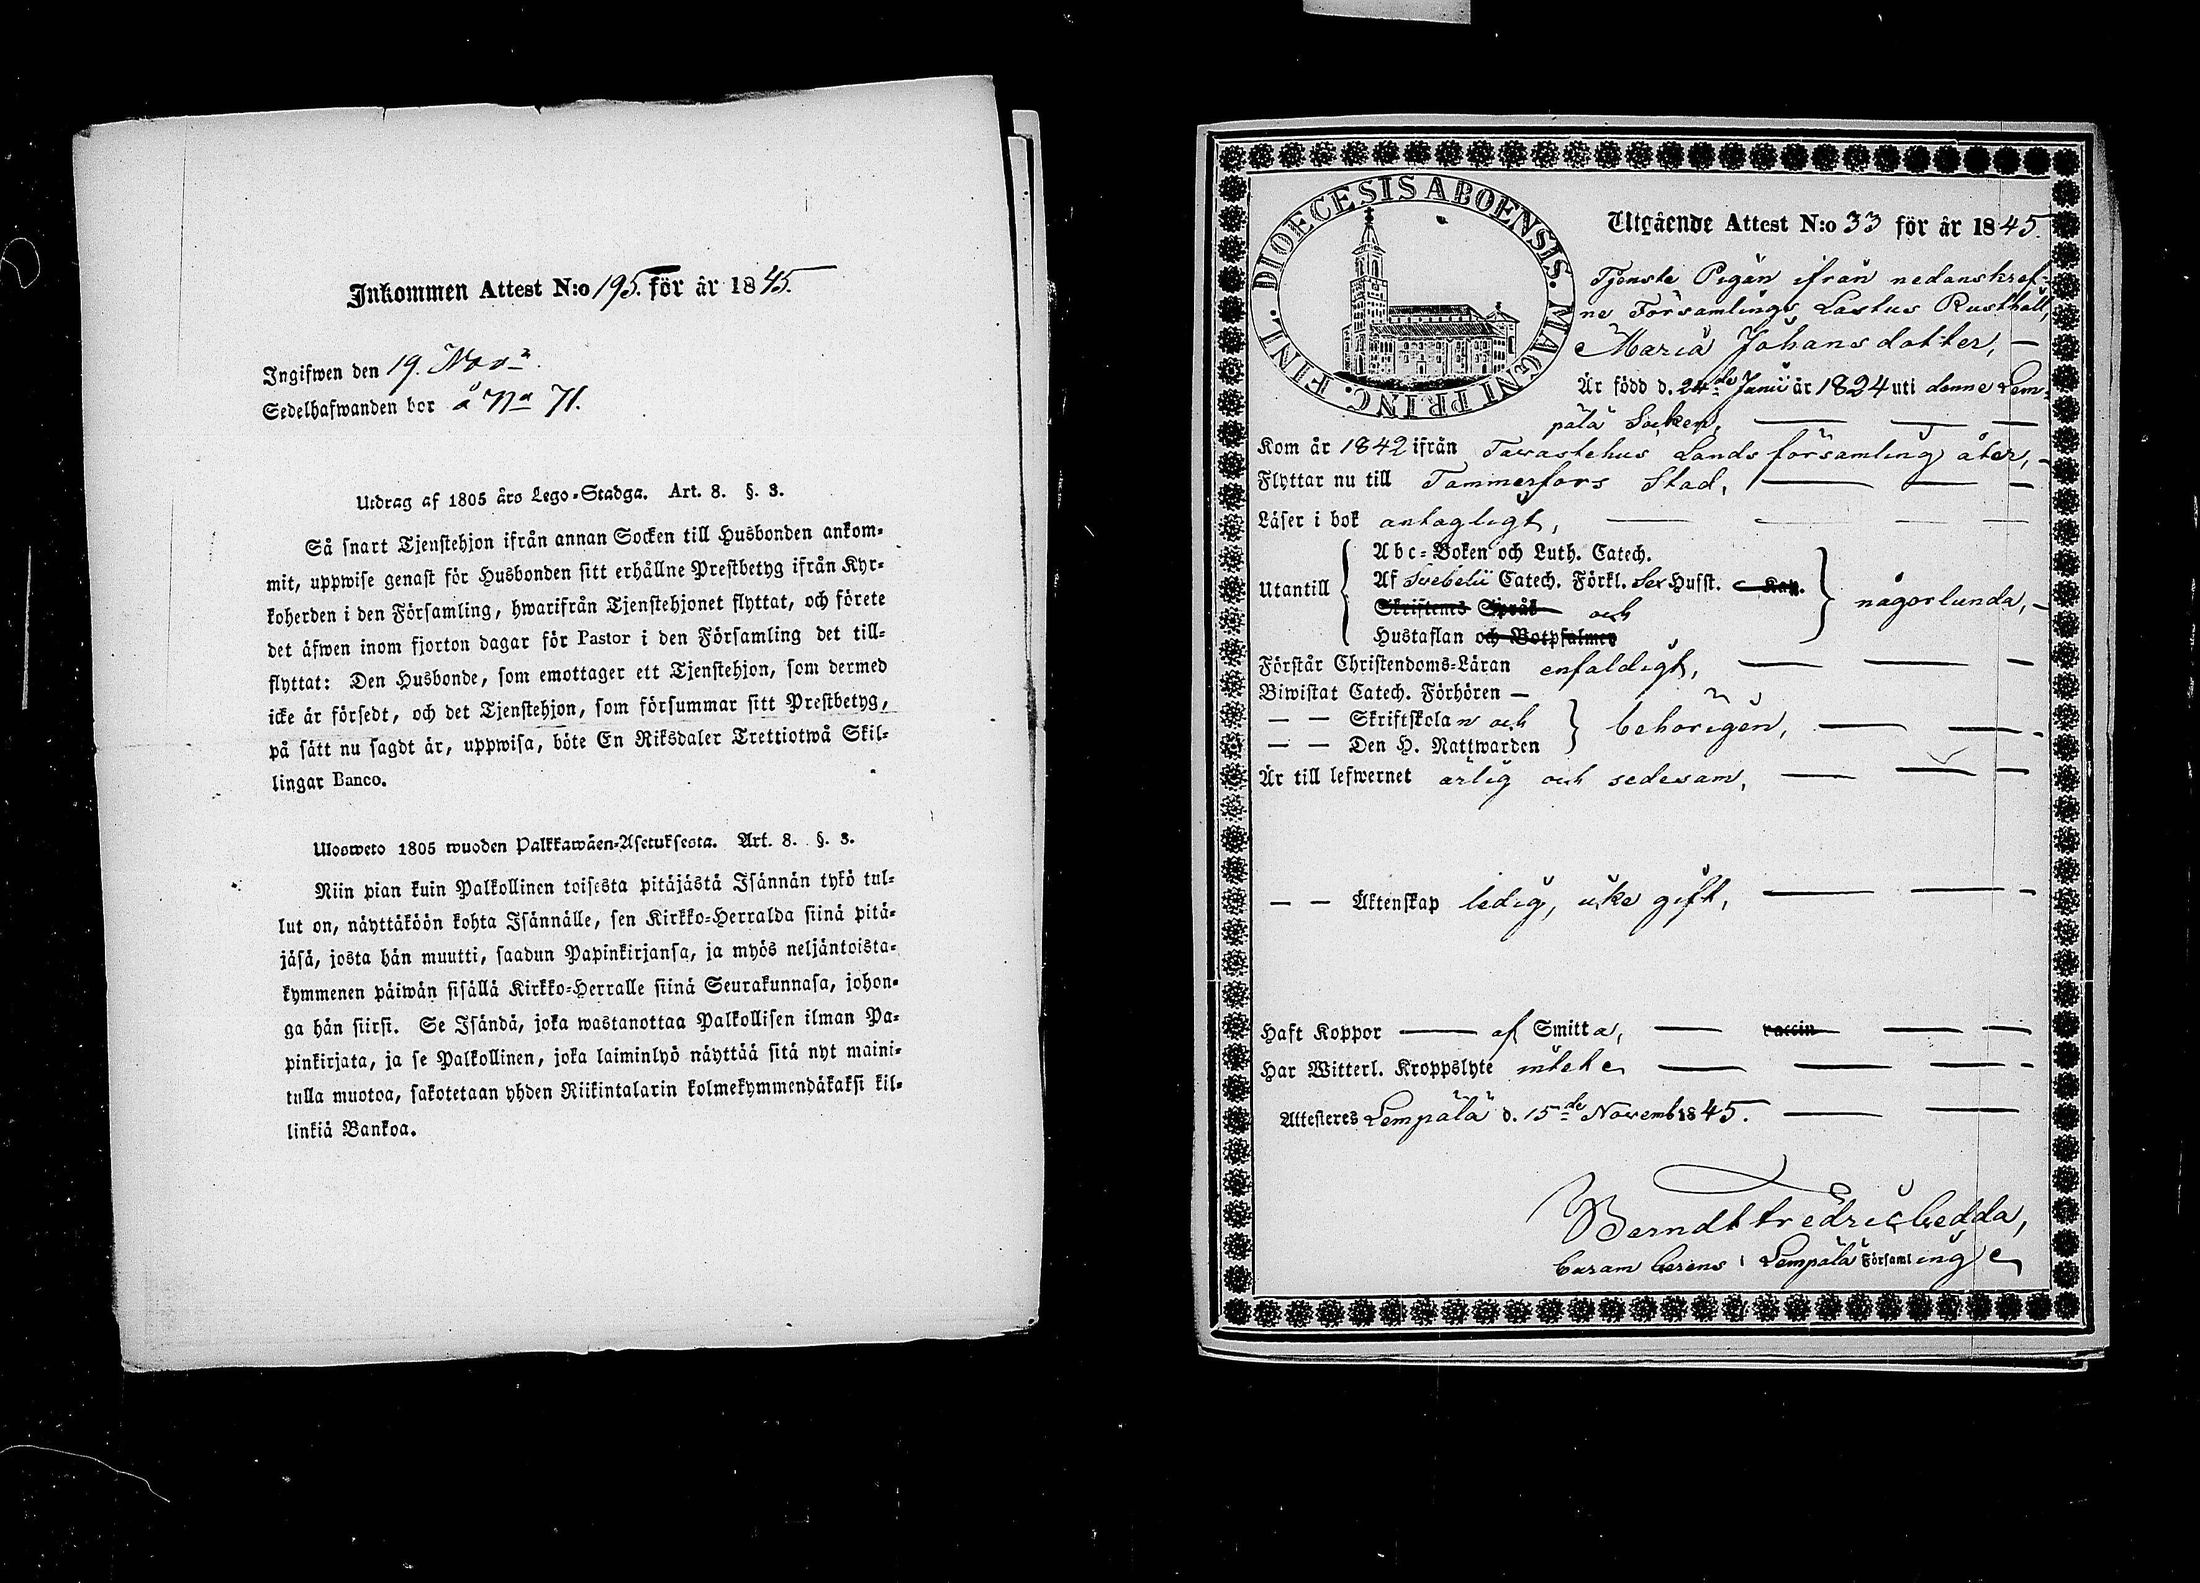 Inkommen Attest N:o 195. för år 1845.
Ingifwen den 19. Nov:
Sedelhafwanden bor å No 71.
Utdrag af 1805 års Lego-Stadga. Art. 8. §. 3.
Så snart Tjenstehjon ifrån annan Socken till Husbonden ankom-
mit, uppwise genast för Husbonden sitt erhållne Prestbetyg ifrån Kyr-
koherden i den Församling, hwarifrån Tjenstehjonet flyttat, och förete
det äfwen inom fjorton dagar för Pastor i den Församling det till-
flyttat: Den Husbonde, som emottager ett Tjenstehjon, som dermed
icke är försedt, och det Tjenstehjon, som försummar sitt Prestbetyg,
på sätt nu sagdt är, uppwisa, böte En Riksdaler Trettiotwå Skil-
lingar Banco.
Ulosweto 1805 wuoden Palkkawäen-Asetuksesta. Art. 8. §. 3.
Niin pian kuin Palkollinen toisesta pitäjästä Isännän tykö tul-
lut on, näyttäköön kohta Isännälle, sen Kirkko-Herralda siinä pitä-
jäsä, josta hän muutti, saadun Papinkirjansa, ja myös neljäntoista-
kymmenen päiwän sisällä Kirkko-Herralle siinä Seurakunnasa, johon-
ga hän siirsi. Se Isändä, joka wastanottaa Palkollisen ilman Pa-
pinkirjata, ja se Palkollinen, joka laiminlyö näyttää sitä nyt maini-
tulla muotoa, sakotetaan yhden Riikintalarin kolmekymmendäkaksi kil-
linkiä Bankoa.
DIOECESIS ABOENSIS. MAGNI PRINC. FINL.
Utgående Attest N:o 33 för år 1845.
Tjenste Pigan ifrån nedanskref-
ne Församlings Lastus Rusthåll,
Maria Johansdotter, —
Är född d. 24de Junii år 1824 uti denne Lem-
pälä Socken, — — —
Kom år 1842 ifrån Tawastehus Landsförsamling åter, —
Flyttar nu till Tammerfors Stad, — — —
Läser i bok antagligt, — — — —
Utantill
Abc-Boken och Luth. Catech.
Af Svebelii Catech. Förkl. Sex Husst. Kap.
Skriftenes Språk och
Hustaflan och Botpsalmer
någorlunda, —
Förstår Christendoms-Läran enfaldigt, — — —
Biwistat Catech. Förhören —
— — Skriftskolan och
— — Den H. Nattwarden
behörigen, — — —
Är till lefwernet ärlig och sedesam, — — —
— — Äktenskap ledig, icke gift, — — —
Haft Koppor — af Smitta, — vaccin — —
Har Witterl. Kroppslyte intet — — — —
Attesteres Lempälä d. 15de Novemb 1845. — —
Berndt Fredric Gedda,
Curam Gerens i Lempälä Församling